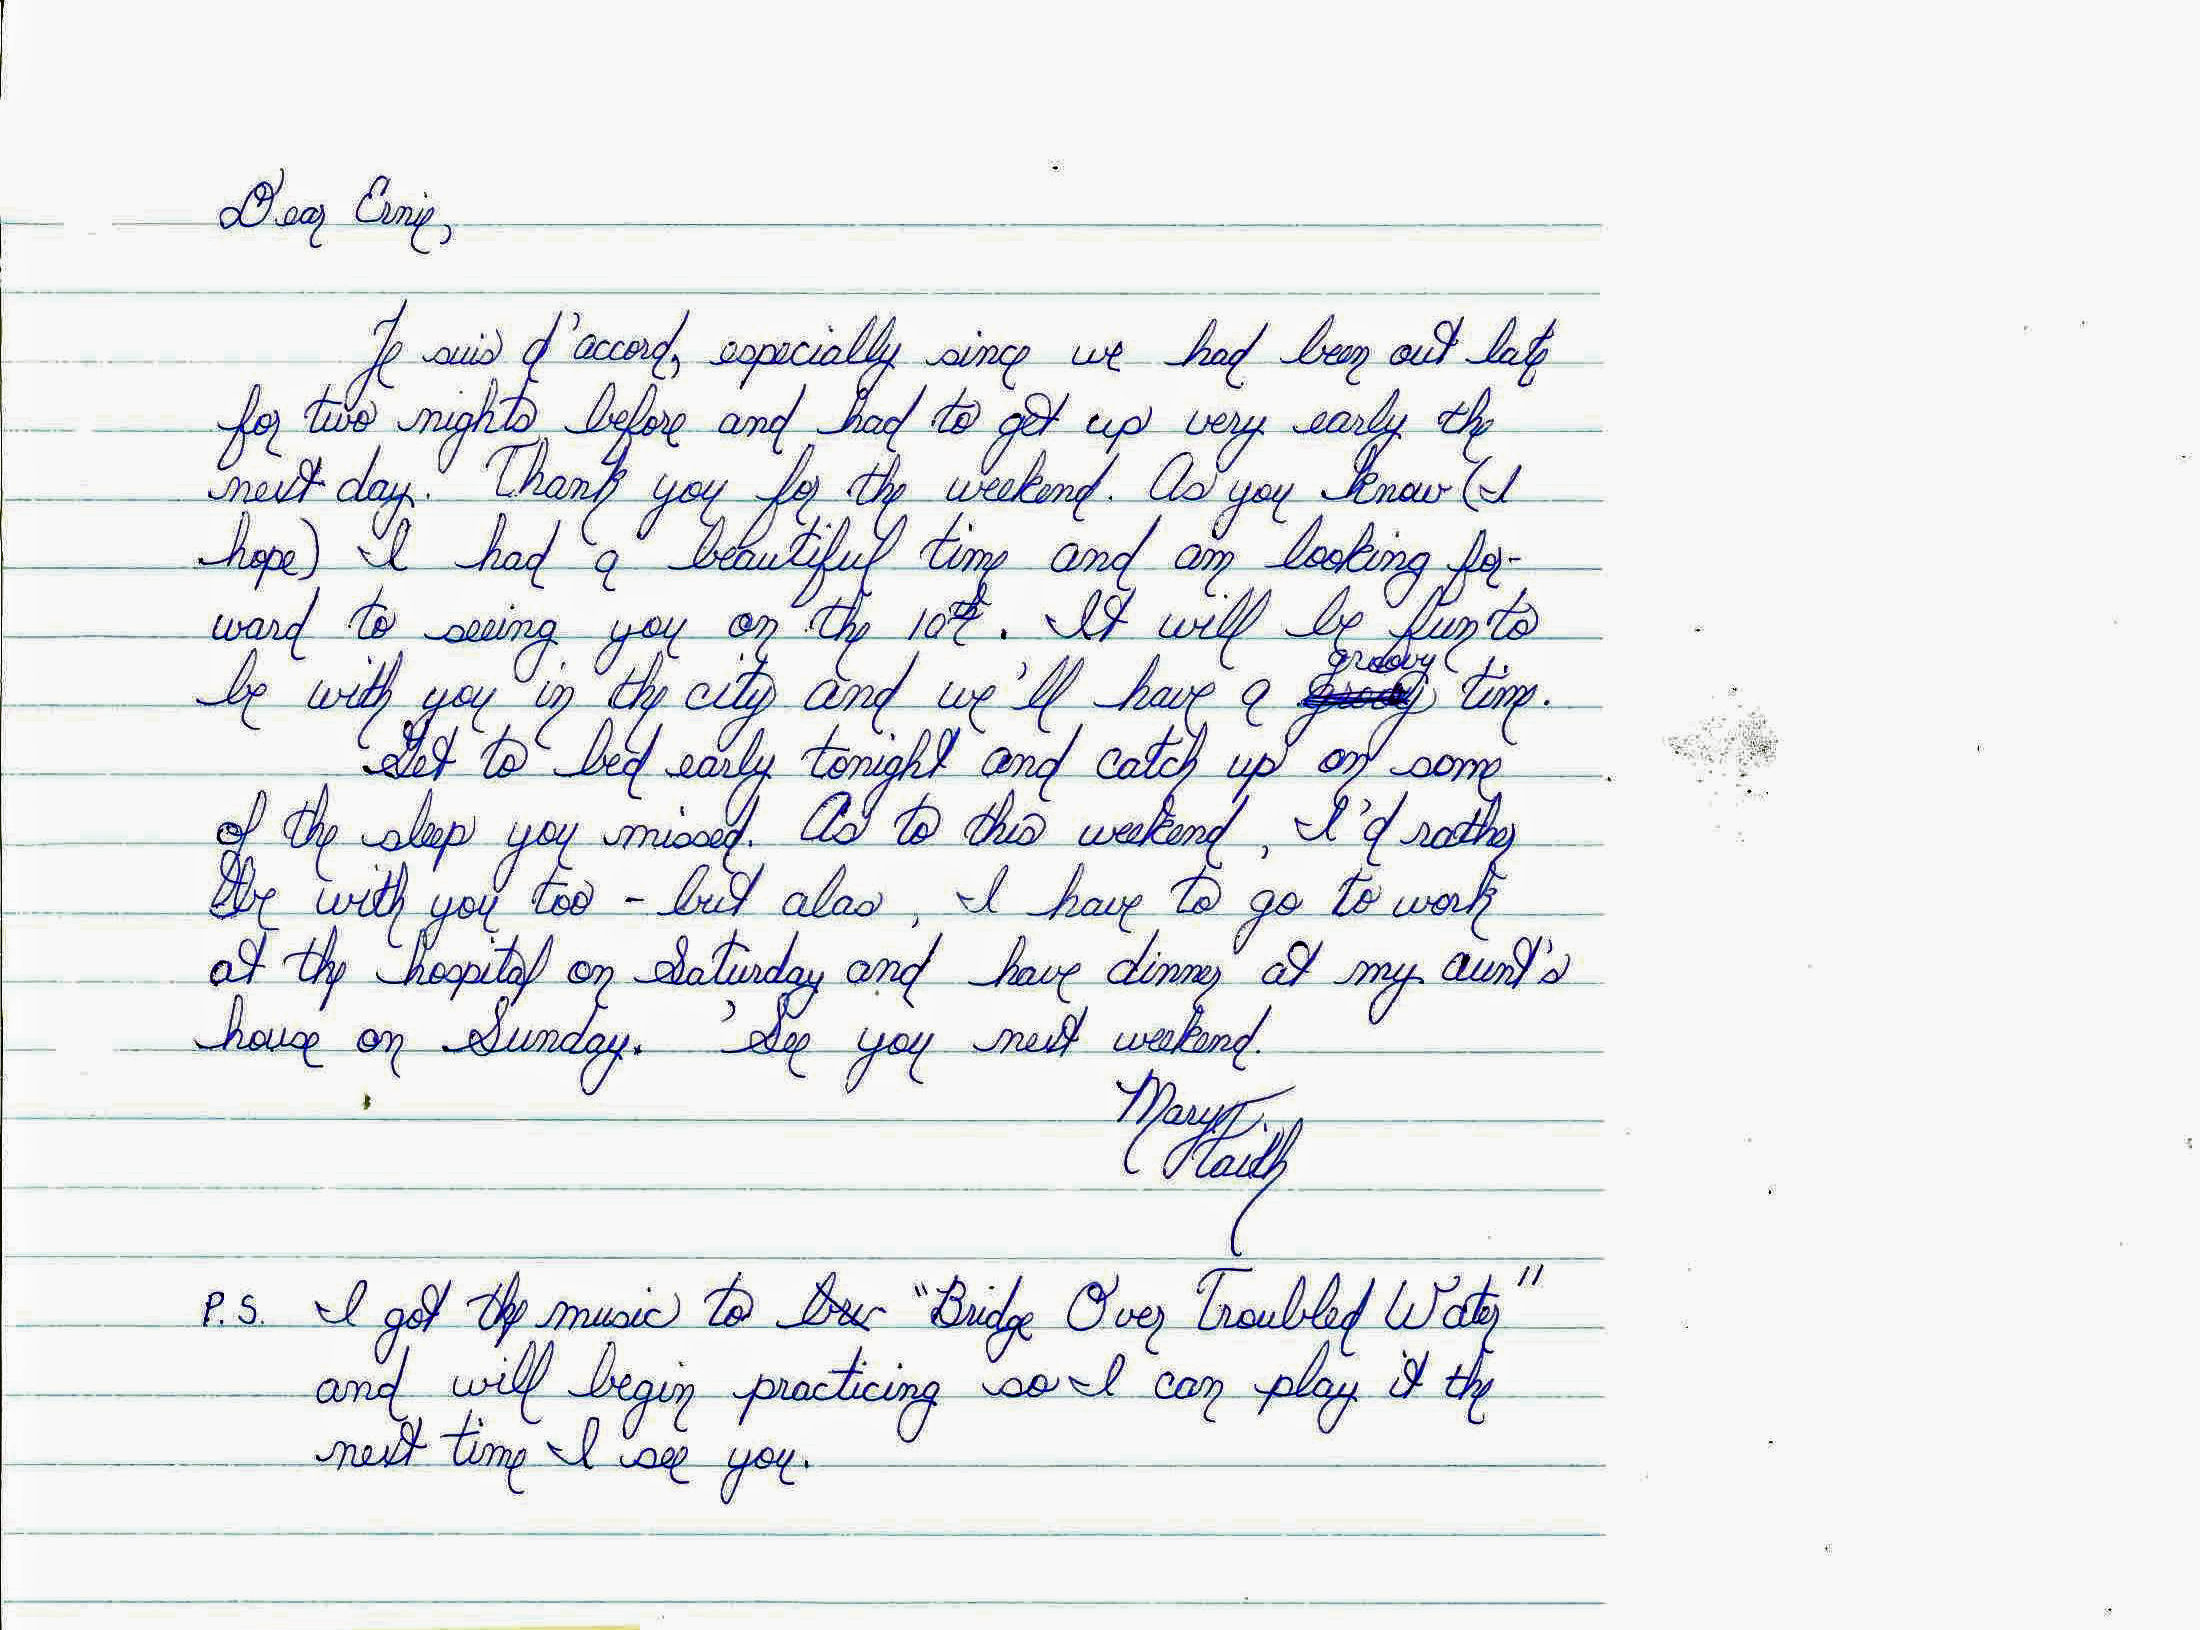 Dear Ernie,
Je suis d'accord, especially since we had been out late
for two nights before and had to get up very early the
next day. Thank you for the weekend. As you know (I
hope) I had a beautiful time and am looking for-
ward to seeing you on the 10th. It will be fun to
groovy
be with you in the city and we'll have a time.
Get to bed early tonight and catch up on some
of the sleep you missed. As to this weekend, I'd rather
be with you too - but alas, I have to go to work
at the hospital on Saturday and have dinner at my aunt's
house on Sunday. 'See you next weekend.
Mary
Faith
P.S. I got the music to "Bridge Over Troubled Water"
and will begin practicing so I can play it the
next time I see you.